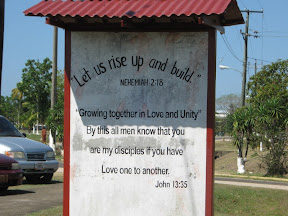 "Let us rise up and build."
NEHEMIAH 2:18
"Growing together in Love and Unity"
By this all men know that you
are my disciples if you have
Love one to another.
John 13:35